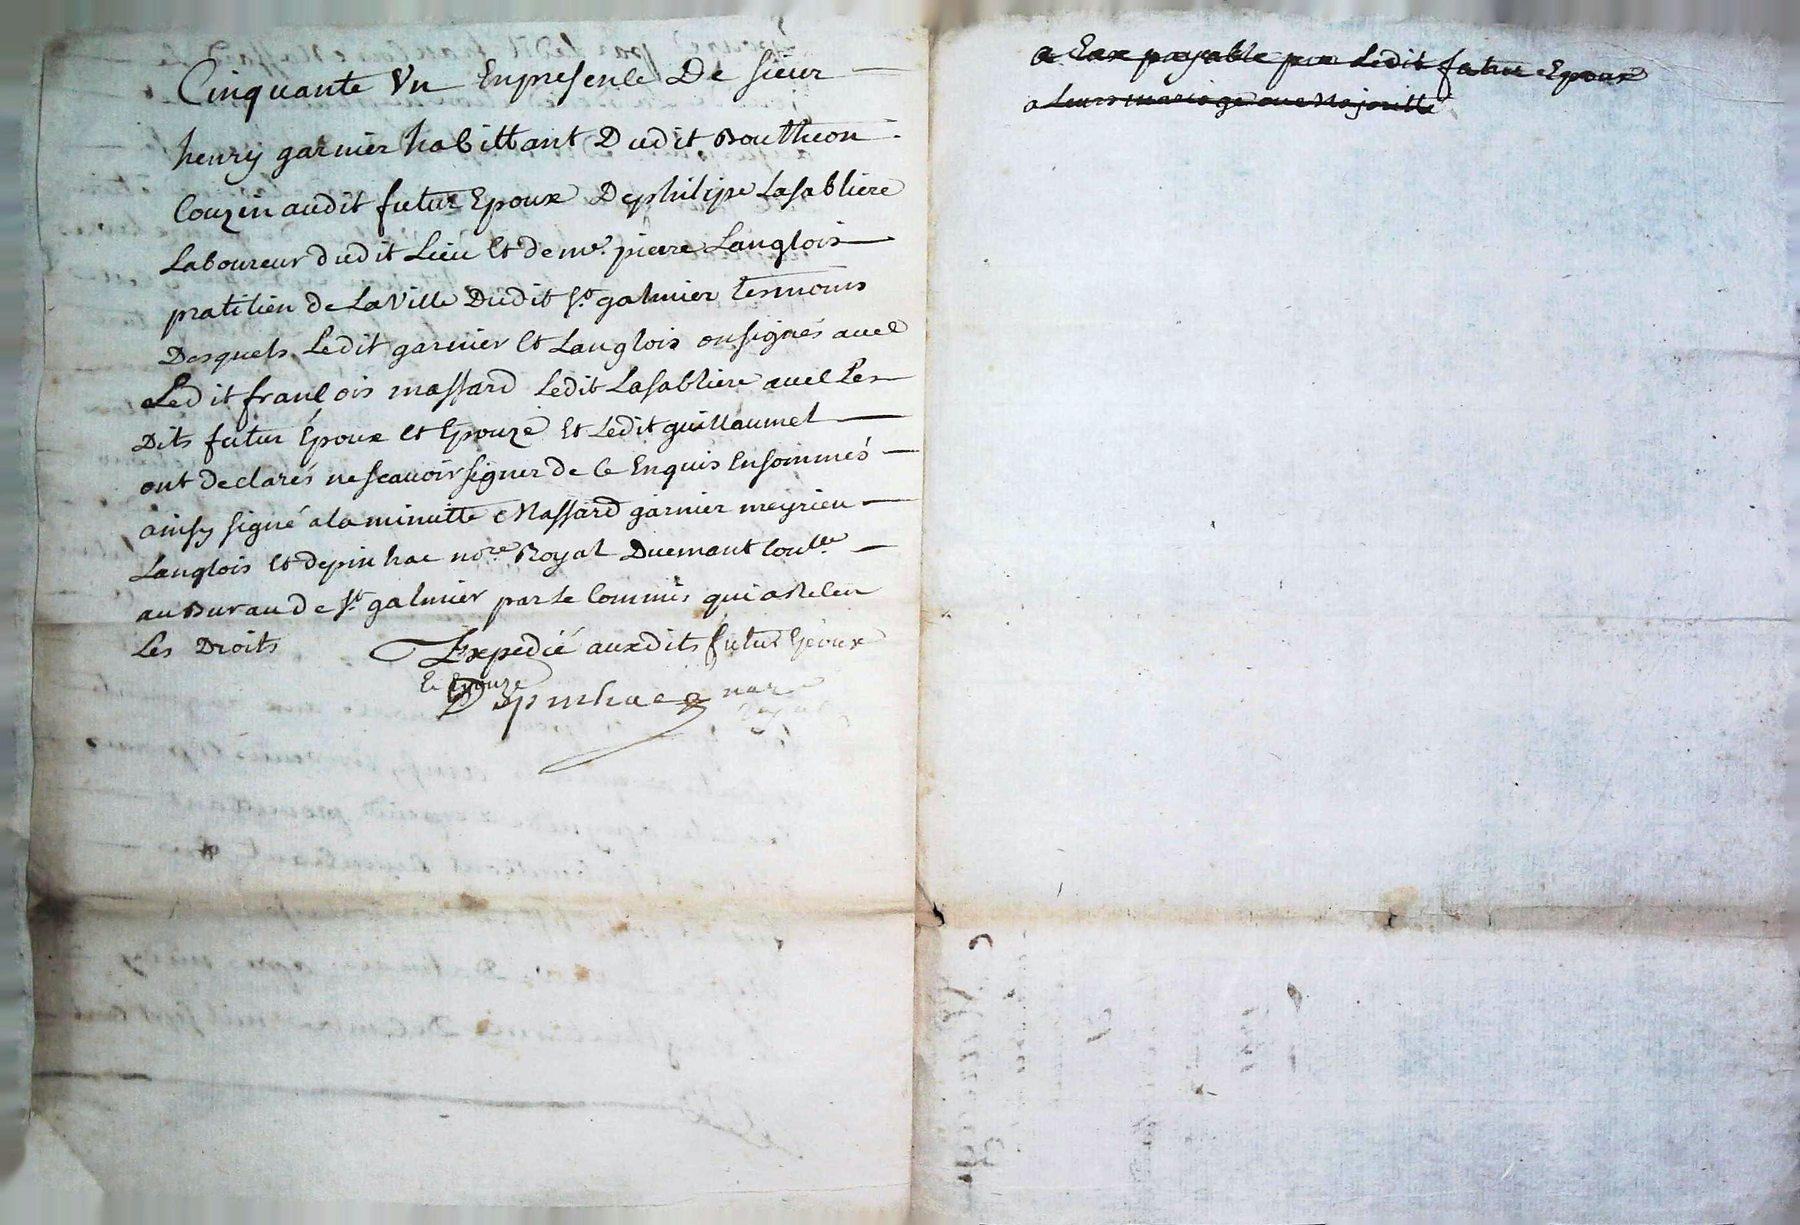 Cinquante Un Enpresence De sieur
henry garnier habittant Dudit Boutheon
Couzin audit futur Epoux De philipe Lasabliere
Laboureur dudit Lieu Et de me. pierre Langlois
praticien de La Ville Dudit St. galmier tesmoins
Desquels Ledit garnier Et Langlois onsignés avec
Ledit francois massard Ledit Lasabliere avec Les
Dits futur Époux et Epouze Et Ledit guillaumet
ont declarés ne scavoir signer de Ce Enquis Ensommés
ainsy signé a la minutte Massard garnier meyrieu
Langlois Et depinhac nore. Royal Duemant Coullé
au Bureau de St. galmier par Le Commis qui a Receu
Les Droits
Expedié auxdits futur Epoux
Et Epouze
Depinhac
a Eux payable par Ledit futur Epoux
a Leurs mariage ou Majoritté